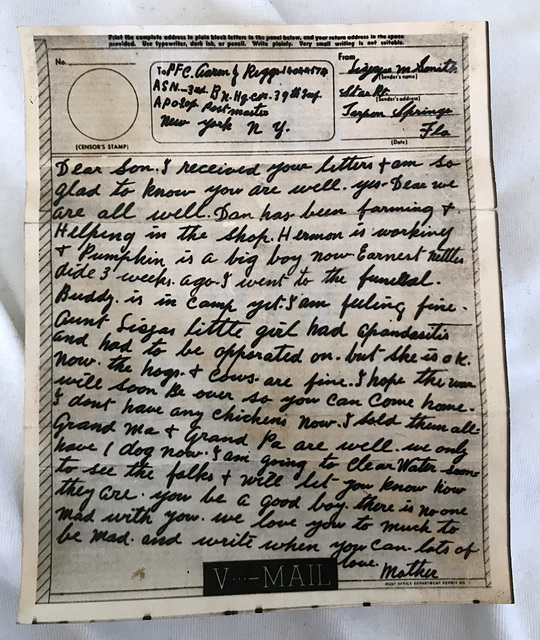 Print the complete address in plain block letters in the panel below, and your return address in the space
provided. Use typewriter, dark ink, or pencil. Write plainly. Very small writing is not suitable.
No.
From
To PFC. Aaron J Ruggs
ASN-3rd. Bn. Hq. co. 39th Inf.
APO 9 of Post master
New york N Y.
(CENSOR'S STAMP)
M. Smith
(Sender's name)
Star Rt.
(Sender's address)
Tarpon Springs
Fla
(Date)
Dear Son. I received your letters + am so
glad to know you are well. yes. Dear we
are all well. Dan has been farming +
Helping in the shop. Hermon is working
+ Pumpkin is a big boy now. Earnest Nettles
dide 3 weeks. ago. I went to the funeral.
Buddy. is in camp yet. I am feeling fine.
Aunt Sizzas little girl had apandasitis
and had to be opporated on. but she is o K.
now. the hogs. + cows. are fine. I hope the war
will soon Be over so you can Come home.
I dont have any chickens now. I sold them all.
Grand Ma + Grand Pa are well. we only
have 1 dog now. I am going to Clear Water soon
to see the folks + will let you know how
they are. you be a good boy. there is no one
mad with you. we love you to much to
be mad. and write when you can. lots of
love.
Mother
V···—MAIL
POST OFFICE DEPARTMENT PERMIT NO.